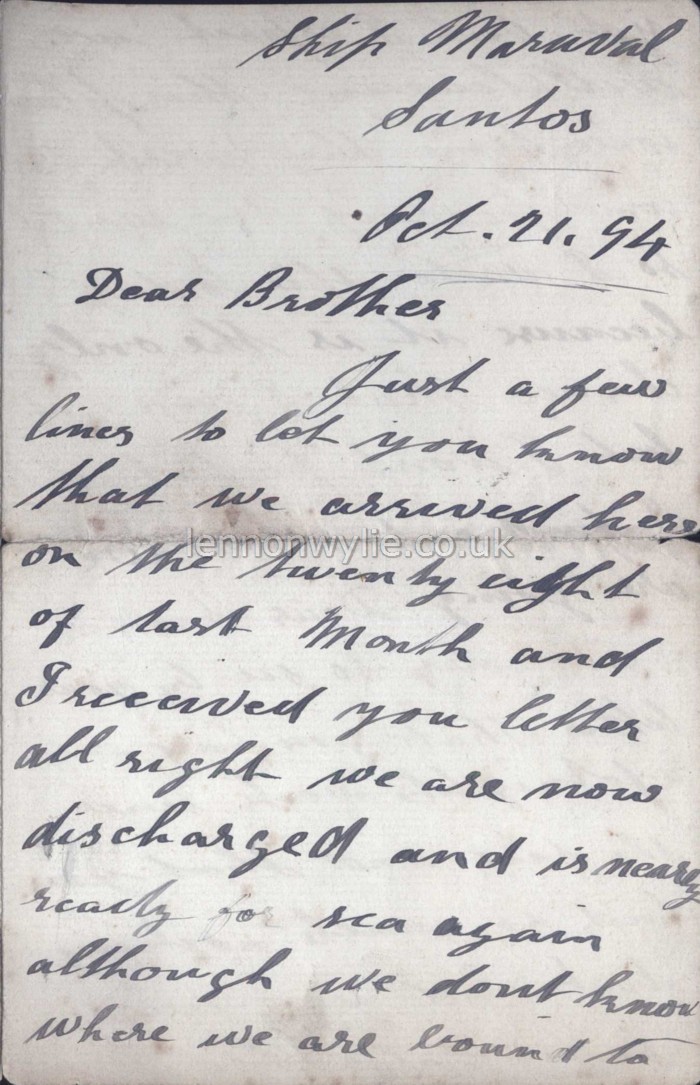 Ship Maraval
Santos
Oct. 21. 94
Dear Brother
Just a few
lines to let you know
that we arrived here
on the twenty eight
lennonwylie.co.uk
of last Month and
I received you letter
all right we are now
discharged and is nearly
ready for sea again
although we dont know
where we are bound to